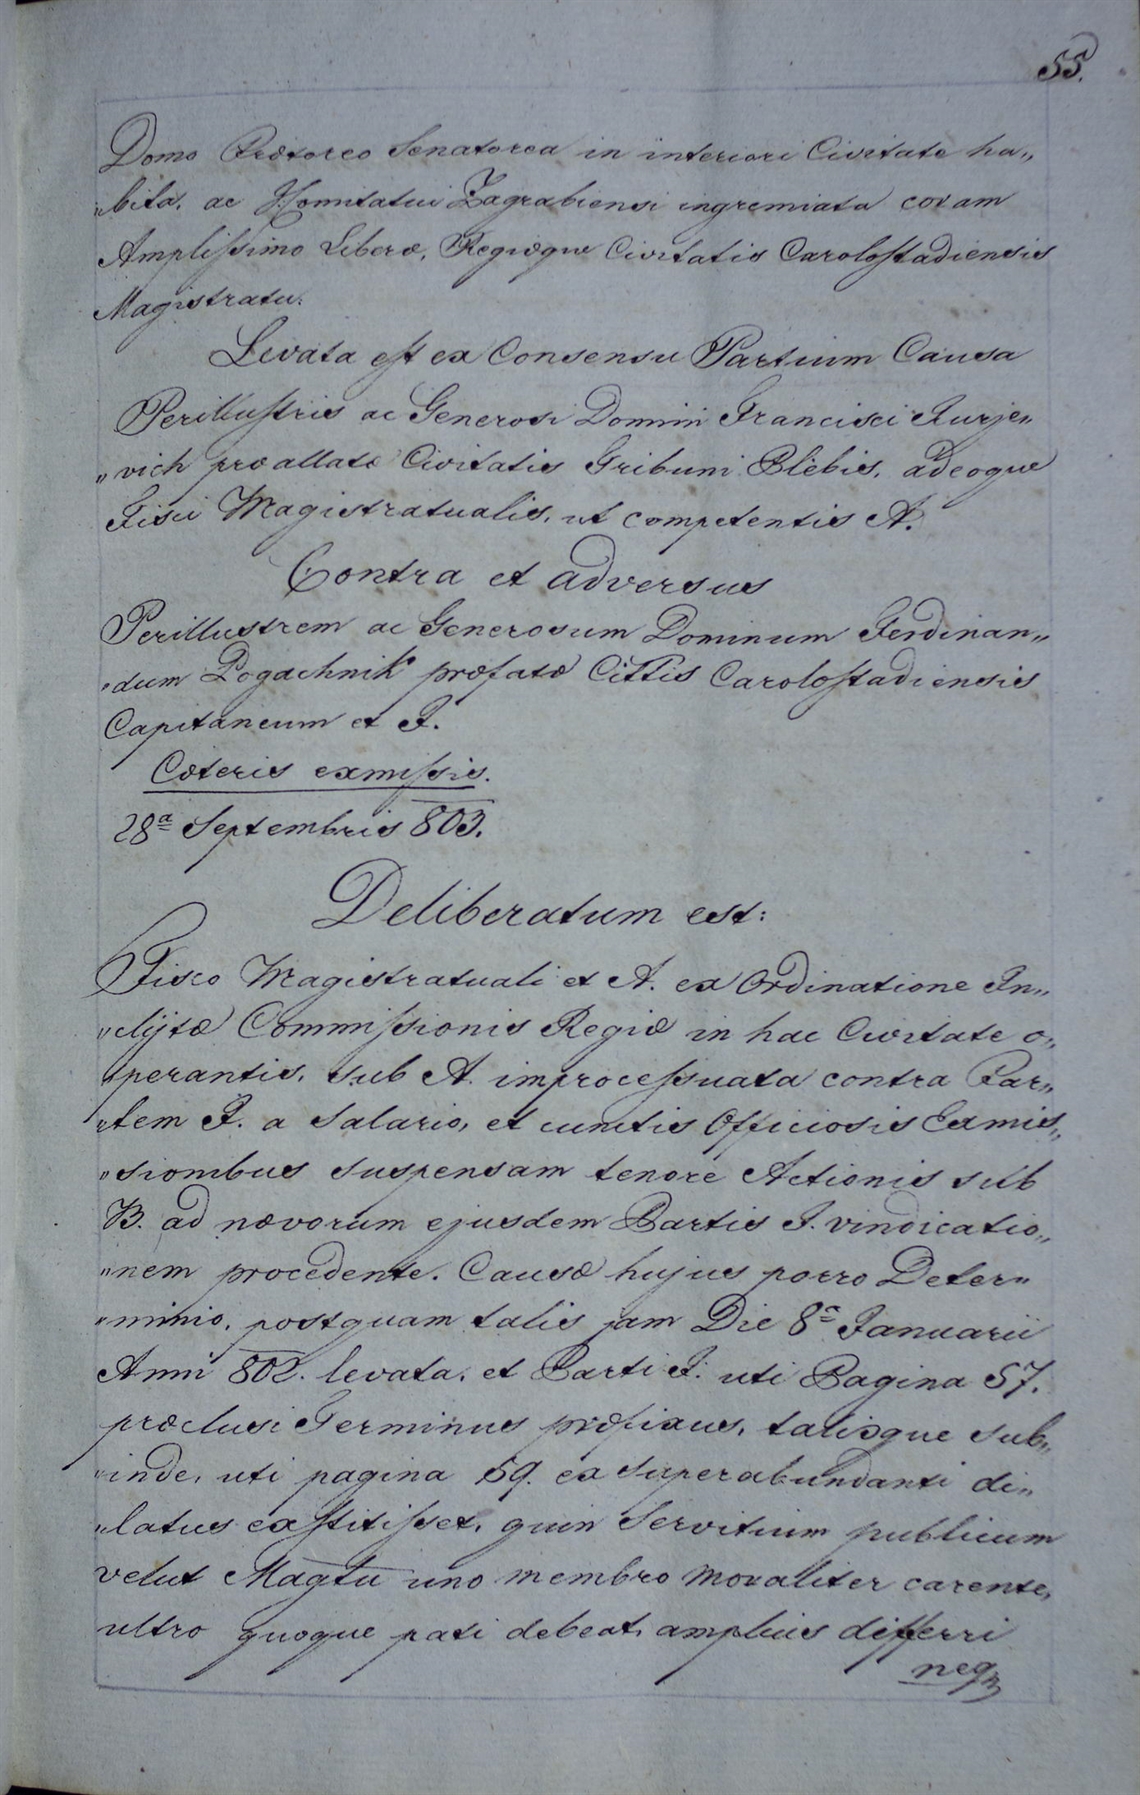 55.
Domo Prætoreo Senatorea in interiori Civitate ha„
„bita, ac Comitatui Zagrabiensi ingremiata coram
Amplissimo Liberæ, Regiæque Civitatis Carolostadiensis
Magistratu.
Levata est ex Consensu Partium Causa
Perillustris ac Generosi Domini Francisci Jurje„
„vich præallatæ Civitatis Tribuni Plebis, adeoque
Fisci Magistratualis, ut competentis A.
Contra et adversus
Perillustrem ac Generosum Dominum Ferdinan„
„dum Pogachnik præfatæ Cittis Carolostadiensis
Capitaneum et I.
Cæteris exmissis.
28ª Septembris 803.
Deliberatum est:
Fisco Magistratuali et A. ex Ordinatione In„
„clÿtæ Commissionis Regiæ in hac Civitate o„
„perantis, sub A. improcessuata contra Par„
„tem I. a Salario, et cunctis Officiosis Exmis„
„sionibus suspensam tenore Actionis sub
B. ad nævorum ejusdem Partis I. vindicatio„
„nem procedente. Causæ hujus porro Deter„
„minio, postquam talis jam Die 8ª Januarii
Anni 802. levata, et Parti I. uti Pagina 57.
præclusi Terminus præfixus, talisque sub„
„inde, uti pagina 59. ex superabundanti di„
„latus exstitisset, quin Servitium publicum
velut Magtu uno membro moraliter carente,
ultro quoque pati debeat, amplius differri
neq